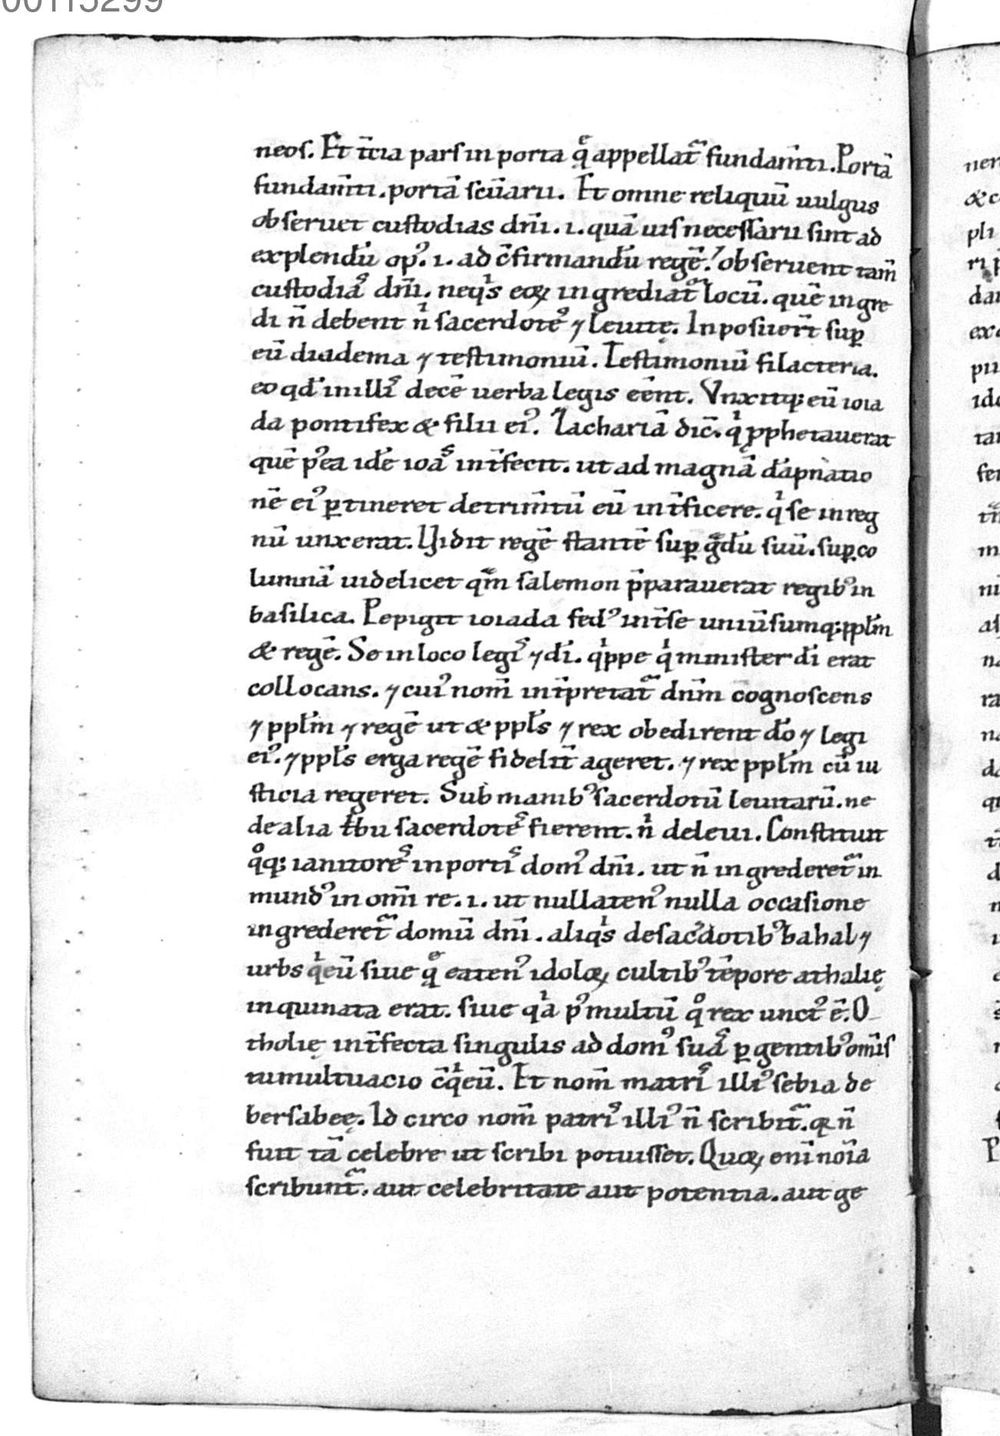 00115299
neos. Et t̄cia pars in porta q̄ appellat̄ fundam̄ti. Portā
fundam̄ti. portā seuıarıı. Et omne reliquū uulgus
obseruet custodias dn̄i. i. quā uis necessarii sint ad
explendū opꝰ. i. ad c̄firmandū regē. obseruent tam̄
custodiā dn̄i. neqͥs eoꝝ ingrediat̄ locū. quē ingre
di n̄ debent nͥ sacerdotēs ⁊ leuitę. Inposuer̄t suꝑ
eū diadema ⁊ testimoniū. Testimoniū filacteria.
eo qd̄ in illis decē uerba legis eēnt. Vnxitqꝫ eū ioia
da pontifex & filii eiꝰ. Zachariā dic̄. qͥ ꝓphetauerat
quē pꝰea idē ioas int̄fecit. ut ad magnā dāpnatio
nē eiꝰ ꝑtineret detrim̄tū eū int̄ficere. qͥ se in reg
nū unxerat. Vidit regē stantē suꝑ gͣdū suū. suꝑ co
lumnā uidelicet qm̄ salemon p̄parauerat regibꝰ in
basilica. Pepigit ioiada fedꝰ int̄ se uniūsumqꝫ ppl̄m
& regē. Se in loco legis ⁊ dī. qͥppe qͥ minister dī erat
collocans. ⁊ cuiꝰ nom̄ int̄pretat̄ dn̄m cognoscens
⁊ ppl̄m ⁊ regē ut & ppl̄s ⁊ rex obedirent dō ⁊ legi
eiꝰ. ⁊ ppl̄s erga regē fidelit̄ ageret. ⁊ rex ppl̄m cū iu
sticia regeret. Sub manibꝰ sacerdotū leuitarū. ne
de alia t̄bu sacerdotēs fierent. nͥ de leui. Constituit
qͦqꝫ ianitores in portis domꝰ dn̄i. ut n̄ ingrederet̄ in
mundꝰ in om̄i re. i. ut nullatenꝰ nulla occasione
ingrederet̄ domū dn̄i. aliqͥs de sac̄dotibꝰ bahal ⁊
urbs qͥeū siue q̄ eatenꝰ idoloꝝ cultibꝰ tēpore athalię
inquinata erat. siue qͥa pꝰ multū qͦ rex unctꝰ ē. O
tholię int̄fecta singulis ad domꝰ suas ꝑgentibꝰ om̄is
tumultuacio c̄qͥeū. Et nom̄ matris illiꝰ sebia de
bersabeę. Idcirco nom̄ patris illiꝰ n̄ scribit̄. qꝛ n̄
fuit tā celebre ut scribi potuisset. Quoꝝ eni noīa
scribunt̄. aut celebritate aut potentia. aut ge